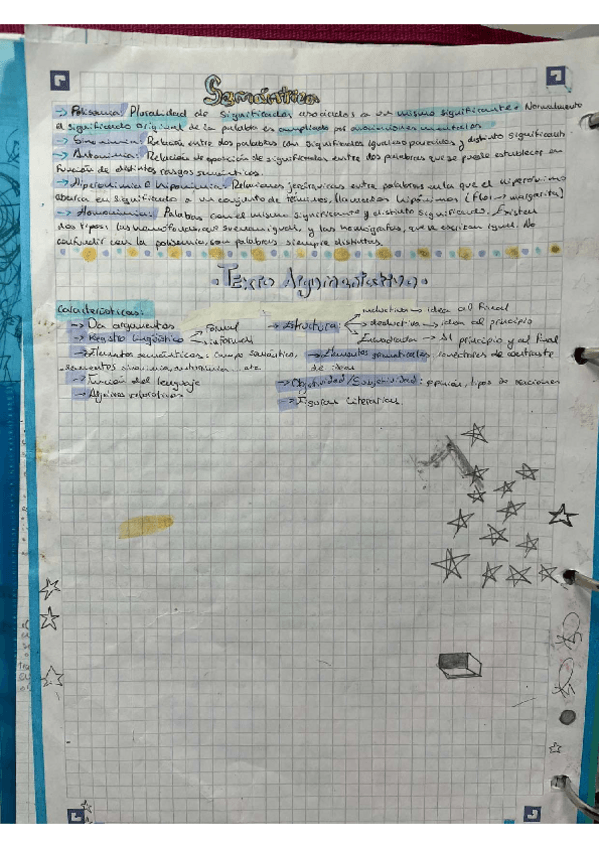 Semántica
→ Polisemia: Pluralidad de significados asociados a un mismo significante. Normalmente
el significado original de la palabra es ampliado por
→ Sinonimia: Relación entre dos palabras con significados iguales o parecidos y distinto significante.
→ Antonimia: Relación de oposición de significados entre dos palabras que se puede establecer en
función de distintos rasgos semánticos.
→ Hiperonimia e hiponimia: Relaciones jerárquicas entre palabras en la que el hiperónimo
abarca en significado a un conjunto de términos, llamados hipónimos (Flor → margarita)
→ Homonimia: Palabras con el mismo significante y distinto significado. Existen
dos tipos: las homófonas, que suenan igual, y las homógrafas, que se escriben igual. No
confundir con la polisemia, son palabras siempre distintas.
Texto Argumentativo
Características:
→ Da argumentos
→ Registro lingüístico → formal
→ informal
→ Elementos semánticos: campo semántico,
sinonimia, antonimia... etc.
→ Función del lenguaje
→ Adjetivos valorativos
→ Estructura: inductiva → idea al final
deductiva → idea al principio
Encuadrada → Al principio y al final
→ Elementos gramaticales, conectores de contraste
de ideas
→ Objetividad/Subjetividad: opinión, tipos de oraciones
→ Figuras literarias.